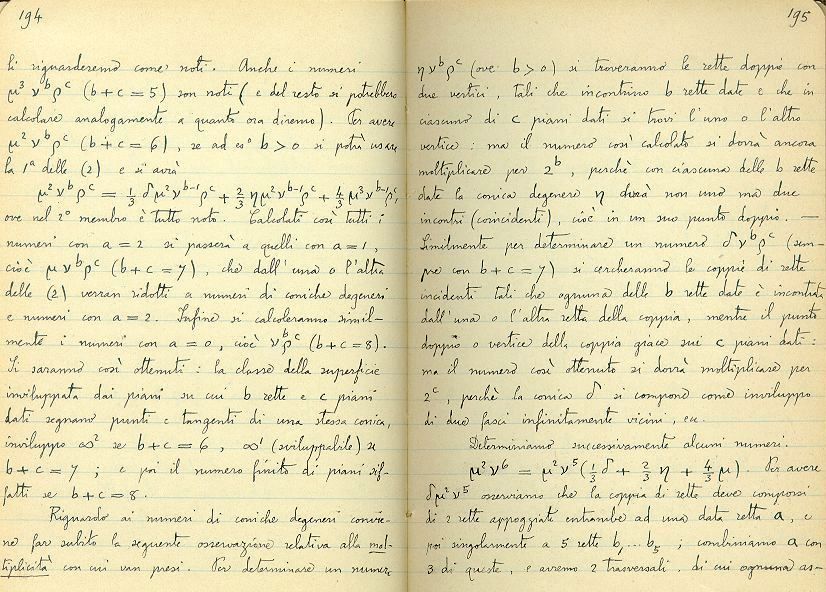 194
li riguarderemo come noti. Anche i numeri
μ³ νᵇ ρᶜ (b+c=5) son noti (e del resto si potrebbero
calcolare analogamente a quanto ora diremo). Per avere
μ² νᵇ ρᶜ (b+c=6), se ad esº b>0 si potrà usare
la 1ª delle (2) e si avrà
μ² νᵇ ρᶜ = 1/3 δμ² νᵇ⁻¹ ρᶜ + 2/3 ημ² νᵇ⁻¹ ρᶜ + 4/3 μ³ νᵇ⁻¹ ρᶜ,
ove nel 2º membro è tutto noto. Calcolati così tutti i
numeri con a=2 si passerà a quelli con a=1,
cioè μ νᵇ ρᶜ (b+c=7), che dall'una o l'altra
delle (2) verran ridotti a numeri di coniche degeneri
e numeri con a=2. Infine si calcoleranno simil-
mente i numeri con a=0, cioè νᵇ ρᶜ (b+c=8).
Si saranno così ottenuti: la classe della superficie
inviluppata dai piani su cui b rette e c piani
dati segnano punti e tangenti di una stessa conica,
inviluppo ∞² se b+c=6, ∞¹ (sviluppabile) se
b+c=7; e poi il numero finito di piani sif-
fatti se b+c=8.
Riguardo ai numeri di coniche degeneri convie-
ne far subito la seguente osservazione relativa alla mol-
tiplicità con cui van presi. Per determinare un numero
195
η νᵇ ρᶜ (ove b>0) si troveranno le rette doppie con
due vertici, tali che incontrino b rette date e che in
ciascuno di c piani dati si trovi l'uno o l'altro
vertice: ma il numero così calcolato si dovrà ancora
moltiplicare per 2ᵇ, perchè con ciascuna delle b rette
date la conica degenere η avrà non uno ma due
incontri (coincidenti), cioè in un suo punto doppio. —
Similmente per determinare un numero δ νᵇ ρᶜ (sem-
pre con b+c=7) si cercheranno le coppie di rette
incidenti tali che ognuna delle b rette date è incontrata
dall'una o l'altra retta della coppia, mentre il punto
doppio o vertice della coppia giace sui c piani dati:
ma il numero così ottenuto si dovrà moltiplicare per
2ᶜ, perchè la conica δ si compone come inviluppo
di due fasci infinitamente vicini, ecc.
Determiniamo successivamente alcuni numeri.
μ² ν⁶ = μ² ν⁵ (1/3 δ + 2/3 η + 4/3 μ). Per avere
δμ² ν⁵ osserviamo che la coppia di rette deve comporsi
di 2 rette appoggiate entrambe ad una data retta a, e
poi singolarmente a 5 rette b₁...b₅; combiniamo a con
3 di queste, e avremo 2 trasversali, di cui ognuna as-